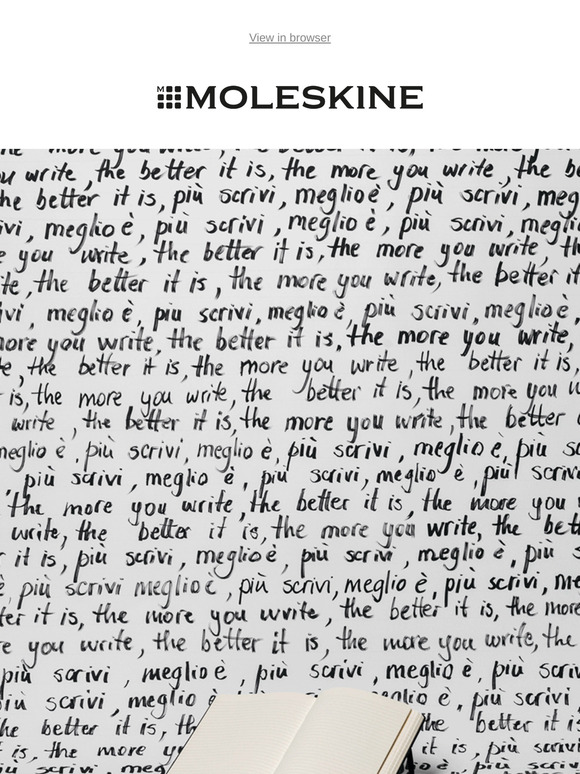 View in browser
MOLESKINE
the more you write, the better it is, the more you
write, the better it is, the more you write, the be
the better it is, più scrivi, meglio è, più scrivi, meg
ivi, meglio è, più scrivi, meglio è, più scrivi, meglio
e you write, the better it is, the more you write, th
ite, the better it is, the more you write, the better it
ivi, meglio è, più scrivi, meglio è, più scrivi, meglio è,
more you write, the better it is, the more you write,
e, the better it is, the more you write, the better it is,
is, the more you write, the better it is, the more you w
write, the better it is, the more you write, the better
meglio è, più scrivi, meglio è, più scrivi, meglio è, più sc
, più scrivi, meglio è, più scrivi, meglio è, più scrivi
the more you write, the better it is, the more you
write, the better it is, the more you write, the bett
it is, più scrivi, meglio è, più scrivi, meglio è, più s
è, più scrivi meglio è, più scrivi, meglio è, più scrivi, me
ter it is, the more you write, the better it is, the more
re you write, the better it is, the more you write, the
più scrivi, meglio è, più scrivi, meglio è, più scriv
più scrivi, meglio è glio è, più scrivi,
he better it is, th the better it is
is, the more yo it is, più scrivi
più scrivi, meg